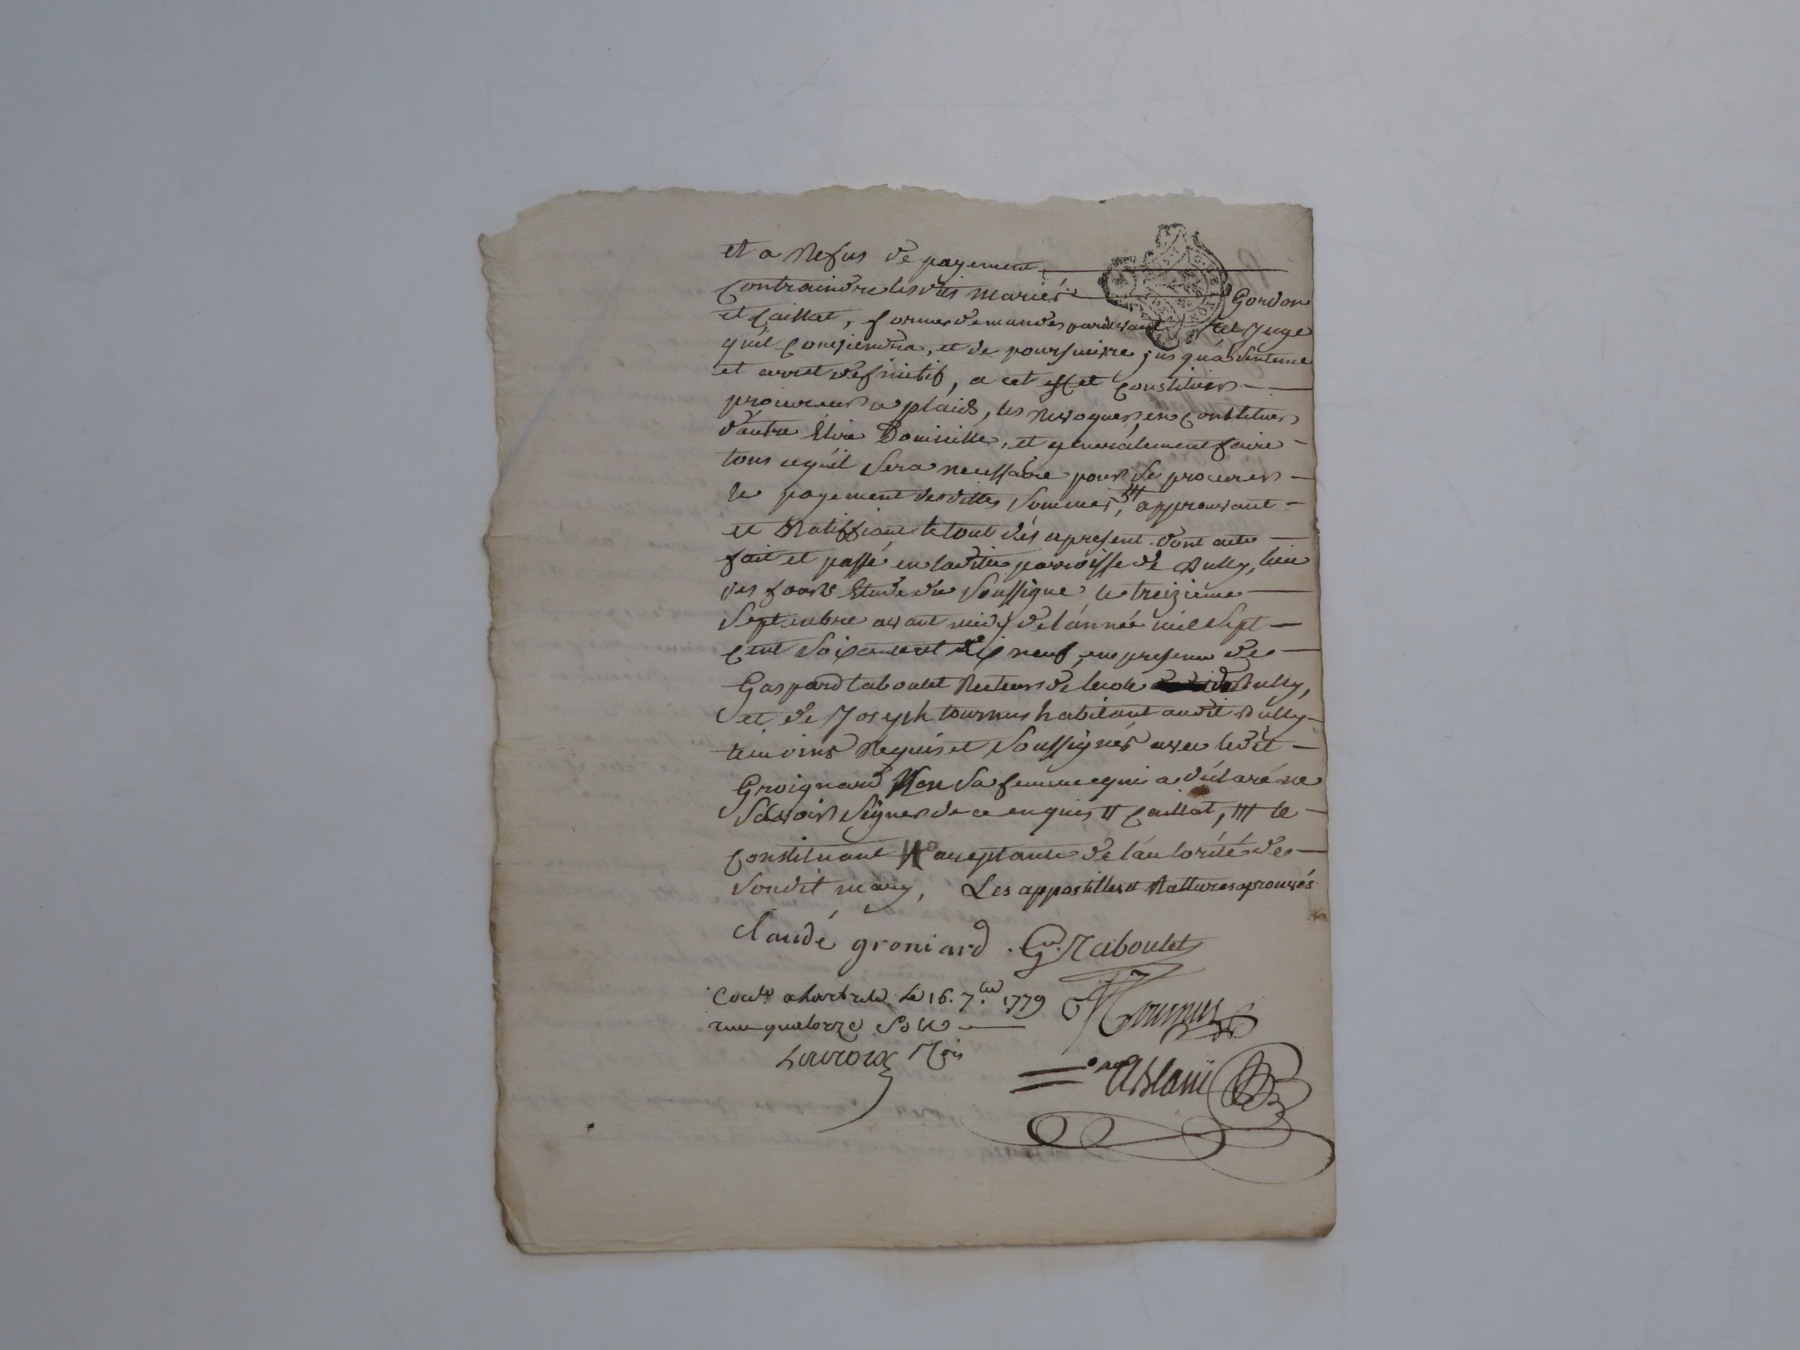 et a Refus de payement
Contraindre lesdits mariés Gordon
et Caillat, former demandes pardevant tel Juge
qu'il Conviendra, et de poursuivre jusqu'a Sentence
et arret definitif, a cet effet Constituer
procureur a plaids, les Revoquer, en Constituer
d'autre Elire Domicille, et generalement faire
tous ce qu'il Sera necessaire pour Se procurer
le payement desdittes Sommes, /// approuvant
et Ratiffiant le tout dés apresent. dont acte
fait et passé en laditte parroisse de Rully, lieu
des Etude du Soussigné le treizieme
Septembre avant midy de l'année mil Sept
Cent Soixante et dix neuf, en presence de
Gaspard taboulet Recteur de lecole de Rully,
et de Joseph tournus habitant audit Rully
temoins Requis et Soussignés avec ledit
Groignard Non Sa femme qui a déclaré ne
Scavoir Signer de ce enquis // Caillat, /// le
Constituant acceptante de l'autorité de
Sondit mary, Les appostilles et Rattures aprouvés
Claude groniard G. Taboulet
Con.lé a le 16. 7.bre 1779 Tournus
Reçu quatorze Sols